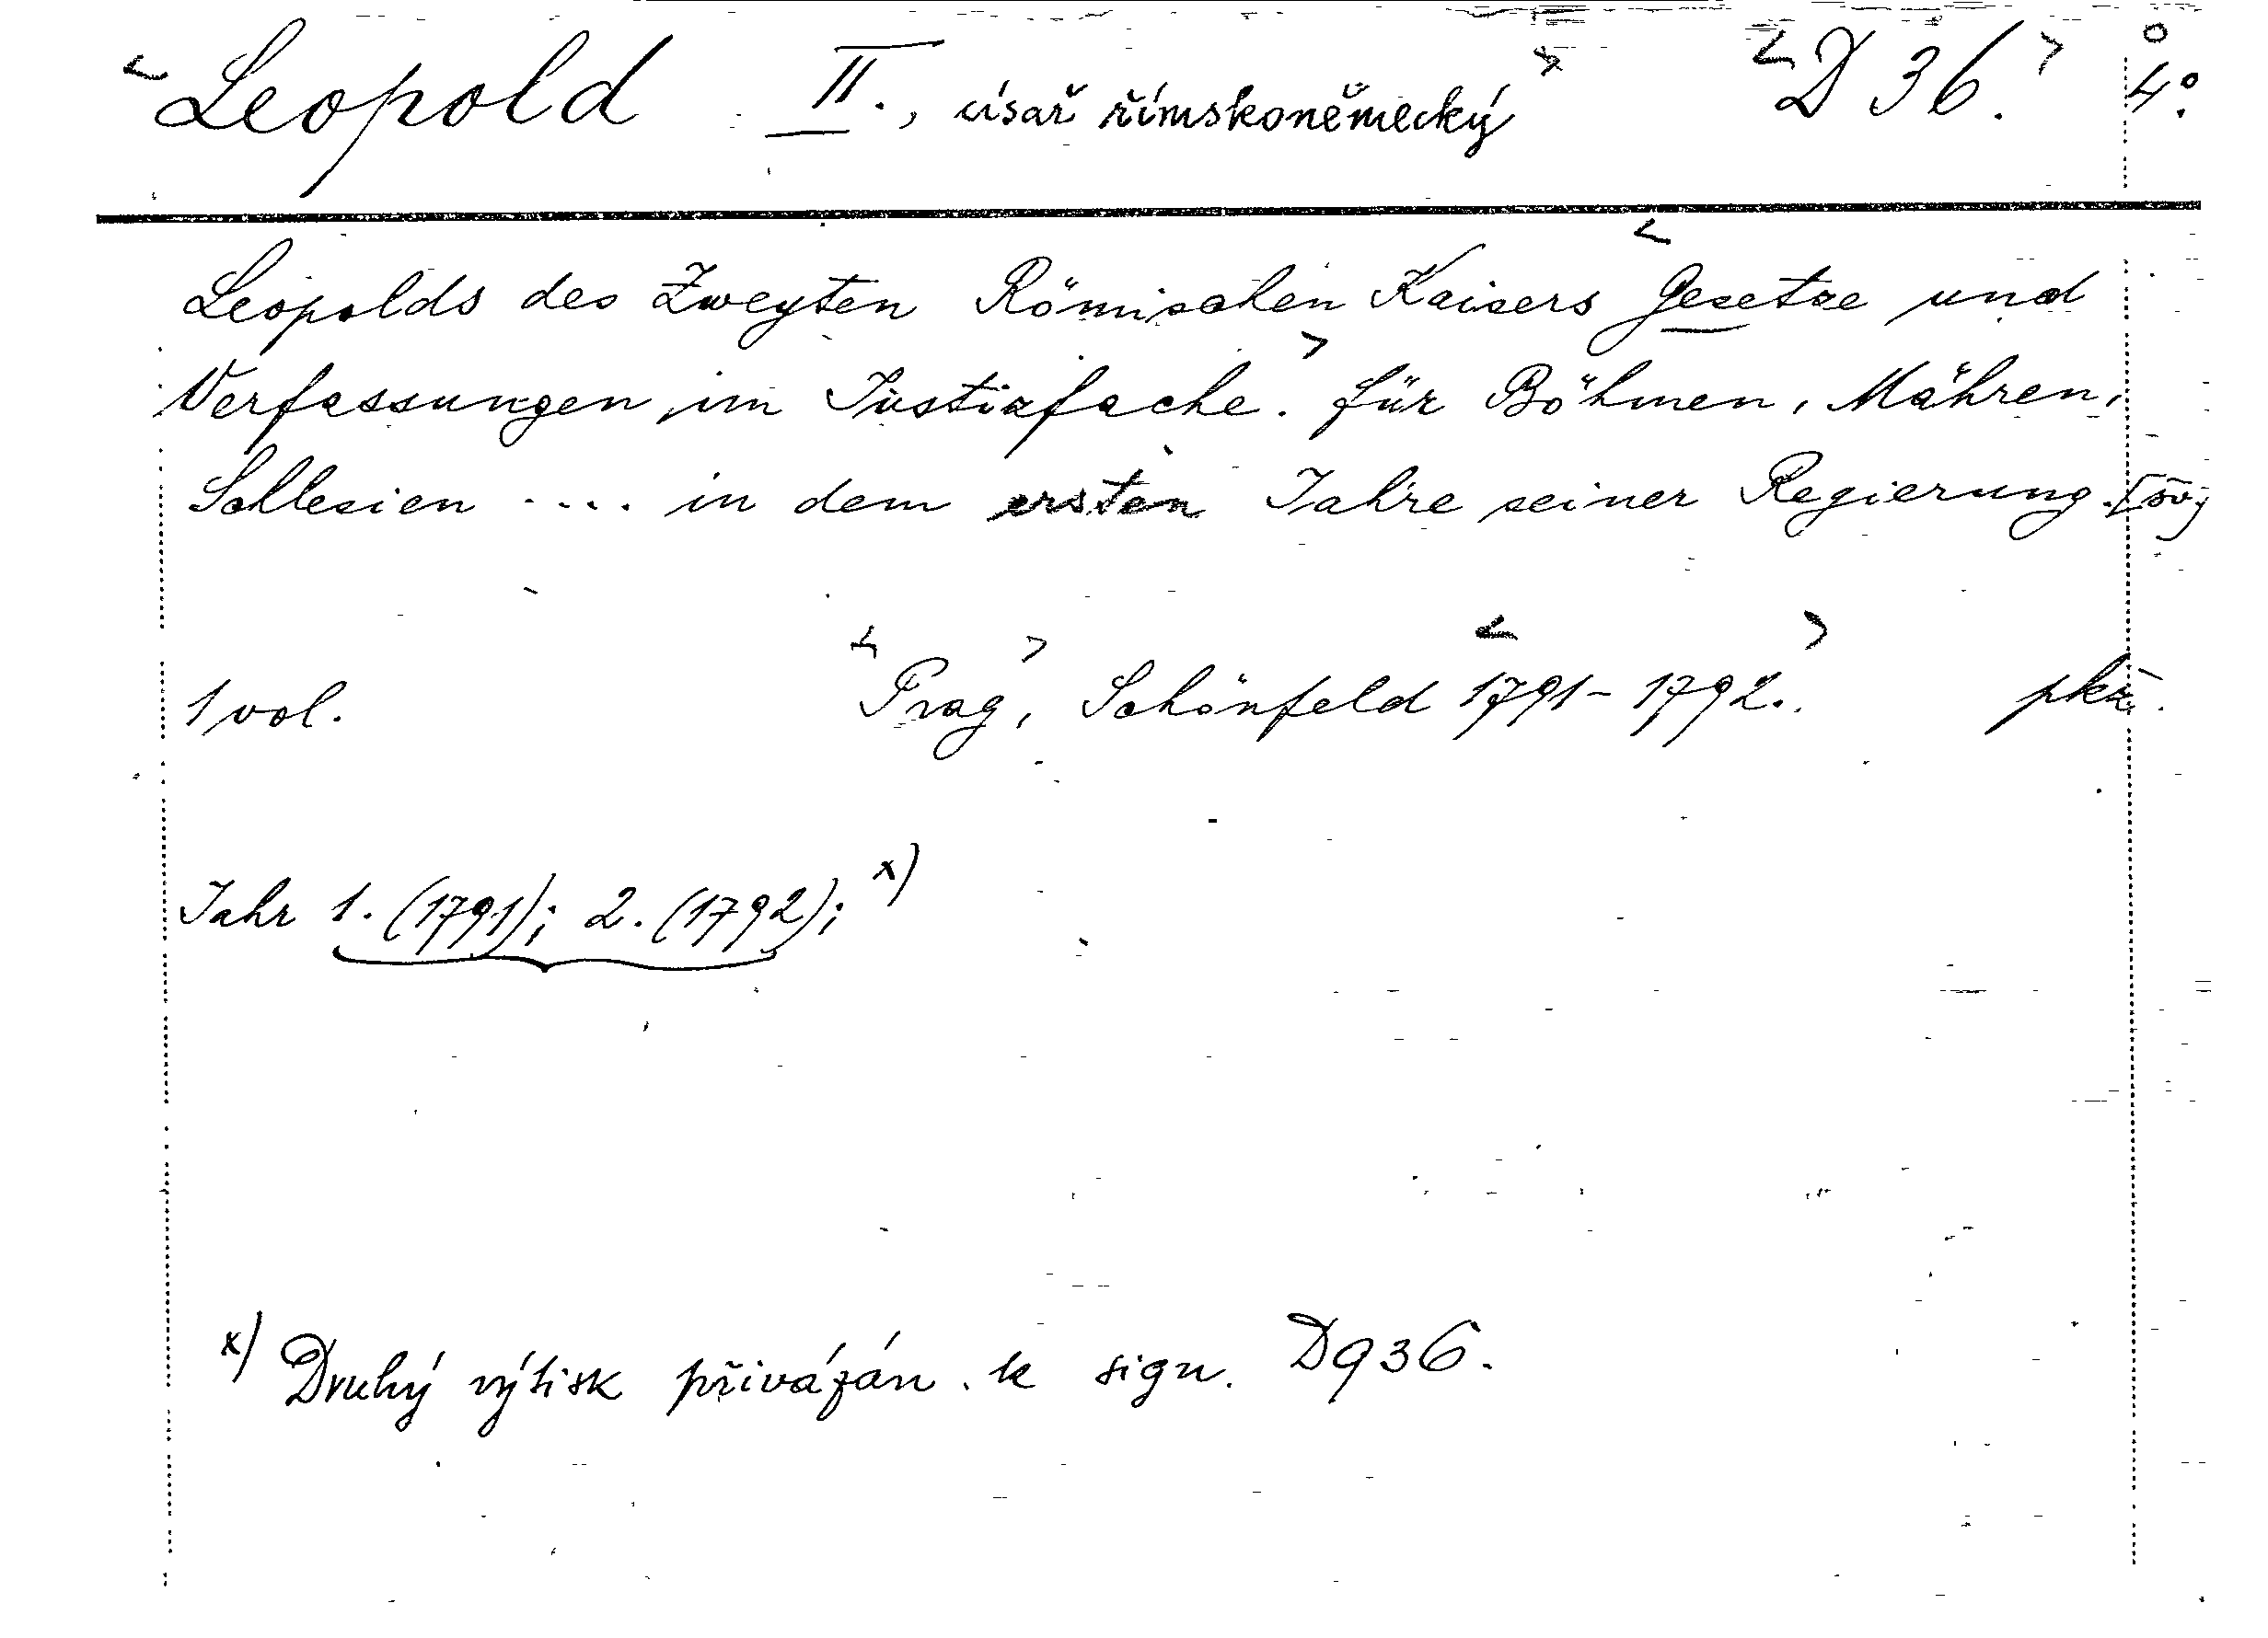 <Leopold II., císař římskoněmecký> <D 36.> 4°.
Leopolds des Zweyten Römischen Kaisers <Gesetze und
Verfassungen im Justizfache.> für Böhmen, Mähren,
Schlesien .... in dem ersten Jahre seiner Regierung.
1 vol. <Prag>, Schönfeld <1791-1792.>
Jahr 1. (1791); 2. (1792); x)
x) Druhý výtisk přivázán k sign. D936.